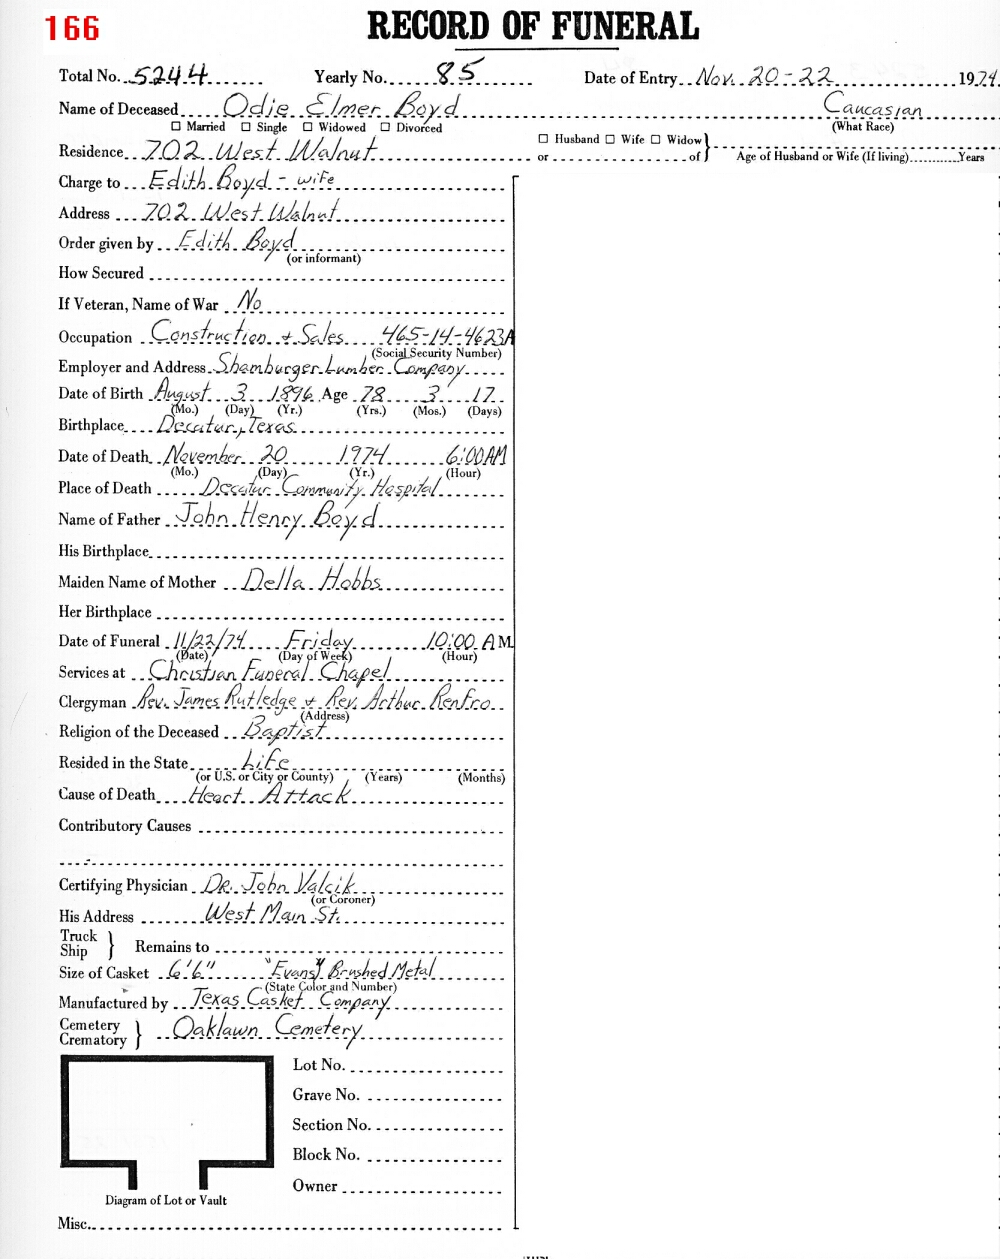 166
RECORD OF FUNERAL
Total No. 5244 Yearly No. 85 Date of Entry Nov. 20-22 1974
Name of Deceased Odie Elmer Boyd Caucasian
☐ Married ☐ Single ☐ Widowed ☐ Divorced (What Race)
Residence 702 West Walnut ☐ Husband ☐ Wife ☐ Widow
or of Age of Husband or Wife (If living) Years
Charge to Edith Boyd - wife
Address 702 West Walnut
Order given by Edith Boyd
(or informant)
How Secured
If Veteran, Name of War No
Occupation Construction + Sales 465-14-4623A
(Social Security Number)
Employer and Address Shamburger Lumber Company
Date of Birth August 3 1896 Age 78 3 17
(Mo.) (Day) (Yr.) (Yrs.) (Mos.) (Days)
Birthplace Decatur, Texas
Date of Death November 20 1974 6:00 AM
(Mo.) (Day) (Yr.) (Hour)
Place of Death Decatur Community Hospital
Name of Father John Henry Boyd
His Birthplace
Maiden Name of Mother Della Hobbs
Her Birthplace
Date of Funeral 11/22/74 Friday 10:00 A M.
(Date) (Day of Week) (Hour)
Services at Christian Funeral Chapel
Clergyman Rev. James Rutledge + Rev. Arthur Renfro
(Address)
Religion of the Deceased Baptist
Resided in the State Life
(or U.S. or City or County) (Years) (Months)
Cause of Death Heart Attack
Contributory Causes
Certifying Physician DR. John Valcik
(or Coroner)
His Address West Main St.
Truck
Ship } Remains to
Size of Casket 6'6" "Evans" Brushed Metal
(State Color and Number)
Manufactured by Texas Casket Company
Cemetery
Crematory } Oaklawn Cemetery
Lot No.
Grave No.
Section No.
Block No.
Owner
Diagram of Lot or Vault
Misc.